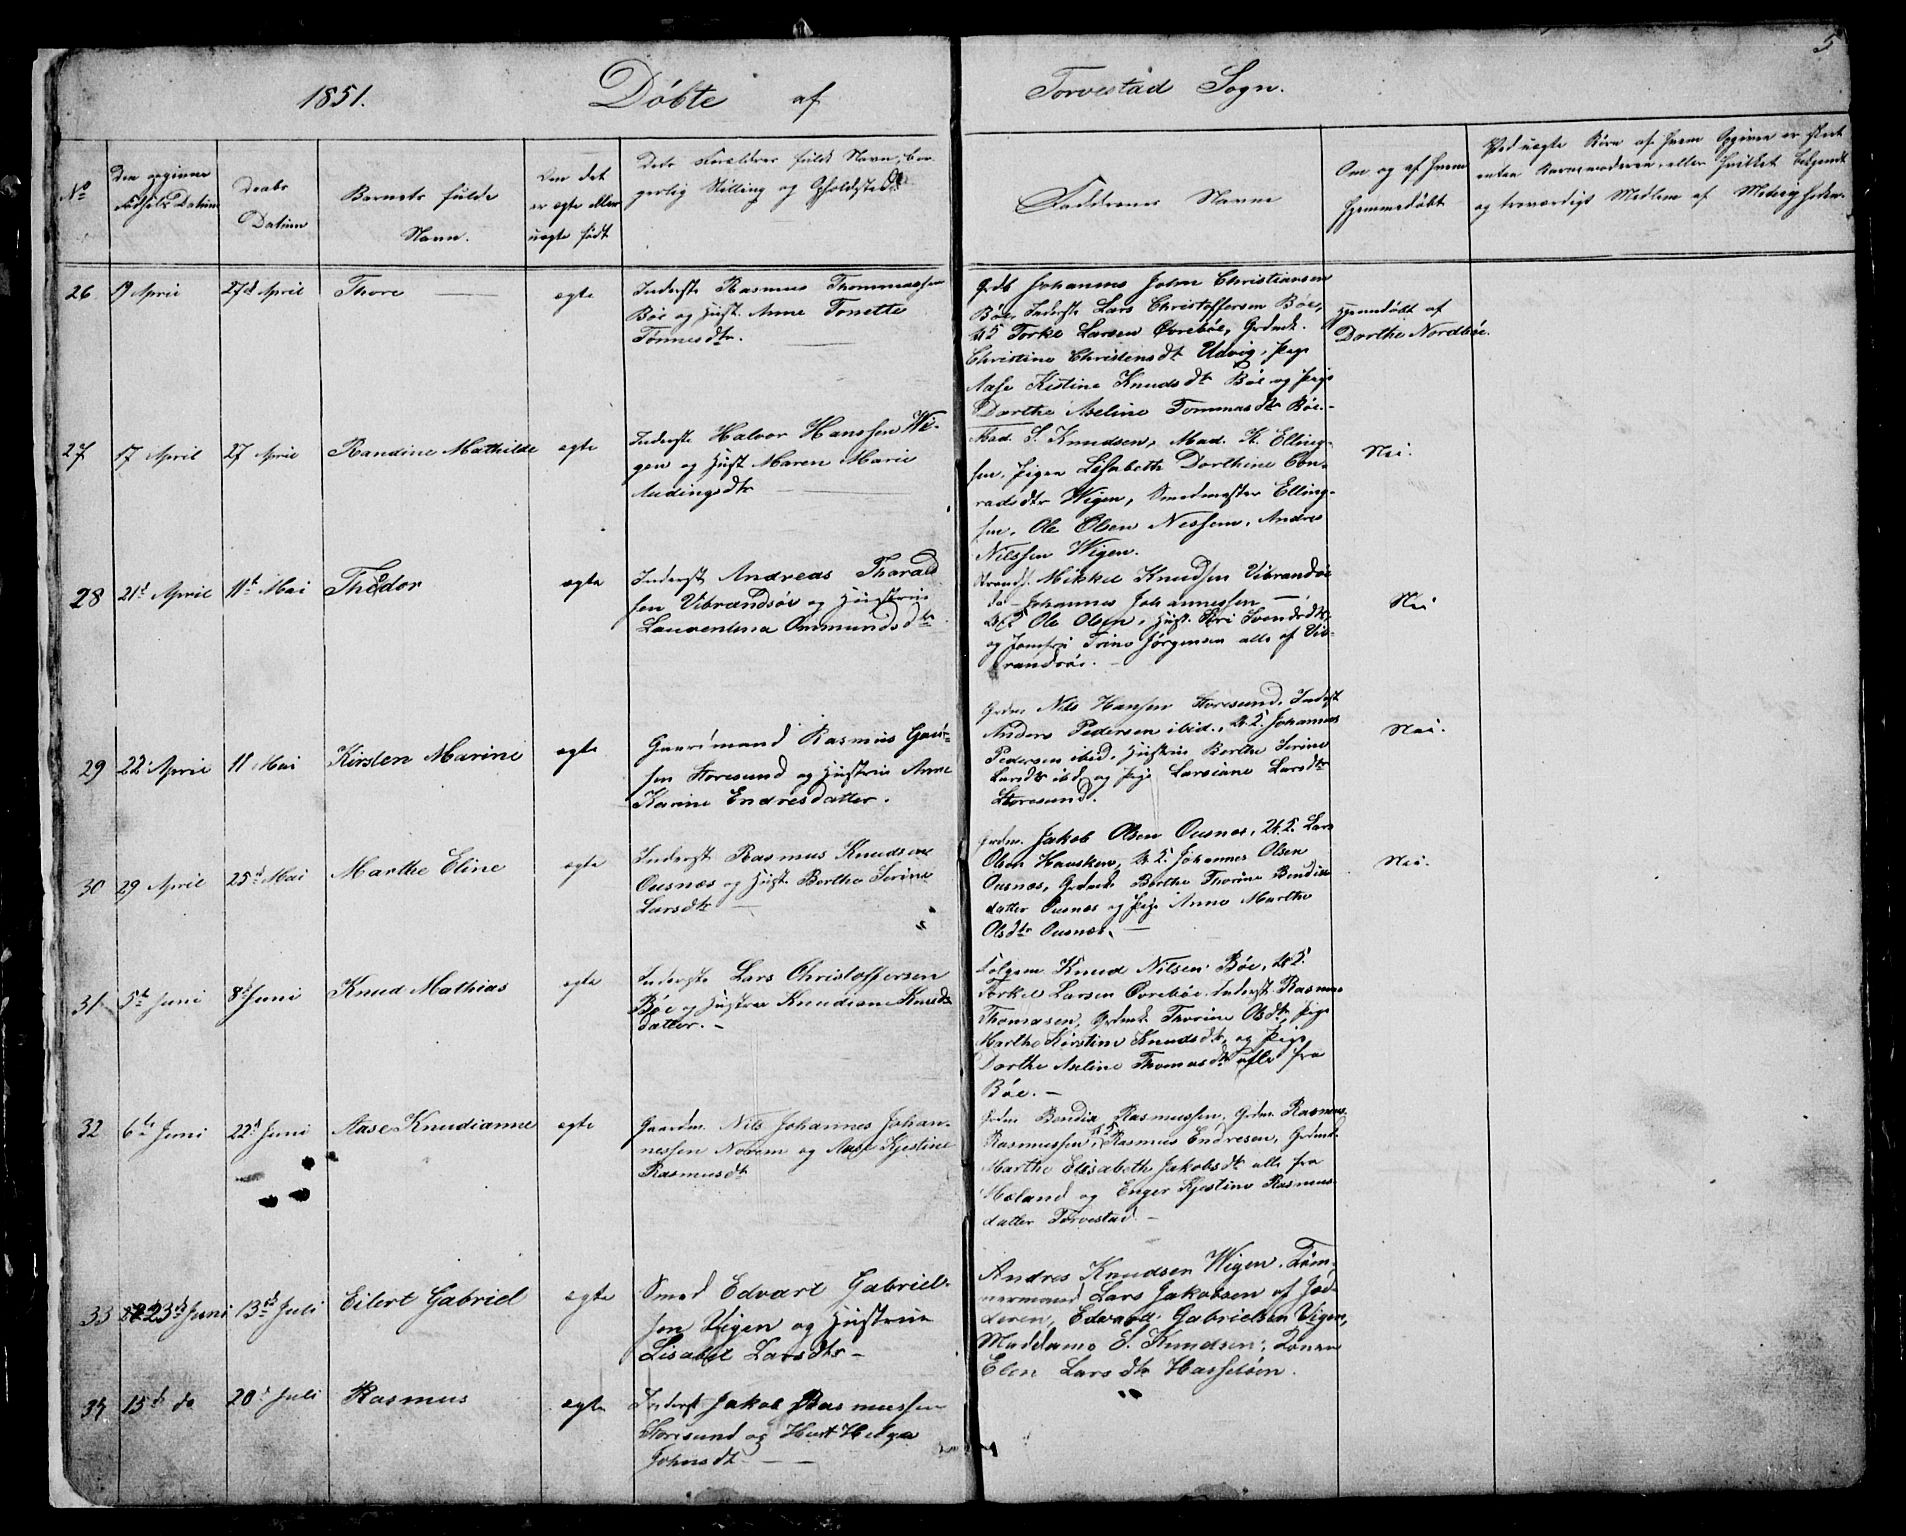 5
1851. Døbte af Torvestad Sogn.
No
Den opgivne Fødsels Datum
Daabs Datum
Barnets fulde Navn.
Om det er ægte eller uægte født
Dets Forældres fulde Navn, borgerlig Stilling og Opholdsted.
Faddrenes Navne
Om og af hvem hjemmedøbt
Ved uægte Børn af hvem Opgiven er skeet
enten Barnemoderen, eller hvilket bekjendt
og troværdigt Medlem af Menigheden.
26 19 April 27d April Thore — ægte
Inderste Rasmus Thommassen
Bøe og Hust. Anne Tonette
Tønnesdtr.
Grdb Johannes John Christiansen
Bøe, Inderst Lars Christoffersen Bøe,
Torke Larsen Øvrebøe, Grdmk.
Christine Christensdtr Udvig, Pige
Aase Kistine Knudsdtr Bøe og Pige
Dorthe Aseline Tommasdtr Bøe.-
Hjemdøbt af
Dorthe Nordbøe.
27 17 April 27 April Randine Mathilde ægte
Inderste Halvor Hanssen Wi-
gen og Hust Maren Marie
Audingsdtr —
Mad. S. Knudsen, Mad. K. Elling-
sen, Pigen Lisabeth Dorthine Con-
radsdtr Wigen, Smedmester Elling-
sen, Ole Olsen Nessem, Andres
Nilssen Wigen.
Nei.
28 21d April 11te Mai Theodor ægte
Inderst Andreas Thorald
sen Vibrandsøe og Hustrue
Lauventina Ommundsdtr.
Strands. Mikkel Knudsen Vibrandsøe
do - Johannes Johannessen —,
Ole Olsen, Hust. Siri Svendsdtr
og Jomfru Trine Jørgensen alle af Vi-
brandsøe. —
Nei
29 22d April 11 Mai Kirsten Marine ægte
Gaardmand Rasmus Gau-
sen Storesund og Hustrue Anne
Karine Endresdatter.
Grdm. Nils Hansen Storesund, Inderst
Anders Pedersen ibid., Johannes
Pedersen ibid, Hustrue Berthe Serine
Larsdtr ibd og Pige Larsiane Larsdtr
Storesund.
Nei.
30 29 April 25d Mai Marthe Eline ægte
Inderst Rasmus Knudsen
Ousnæs og Hust Berthe Serine
Larsdtr —
Grdm. Jakob Olsen Ousnæs, Lars
Olsen Hausken, Johannes Olsen
Ousnæs, Grdmk Berthe Thorine Bendix
datter Ousnæs og Pige Anne Marthe
Olsdtr Ousnæs. —
Nei.
31 5te Juni 8d Juni Knud Mathias ægte
Inderste Lars Christoffersen
Bøe og Hustrue Knudiane Knuds
datter. -
Knud Nilsen Bøe,
Torkel Larsen Øvrebøe, Inderst Rasmus
Thomasen, Grdmk Thorine Olsdtr, Pige
Marthe Kirstine Knudsdtr, og Pige
Dorthe Aseline Thomasdtr alle fra
Bøe. -
32 6te Juni 22d Juni Aase Knudianne ægte
Gaardm. Nils Johannes Johan-
nessen Norem og Aase Kjestine
Rasmusdtr
Grdm Bendix Rasmussen, Grdm. Rasmus
Rasmussen, Rasmus Endresen, Grdmk
Marthe Elisabeth Jakobsdtr alle fra
Mæland og Enger Kjestine Rasmus
datter Torvestad. -
33 23d Juni 13de Juli Eilert Gabriel ægte
Smed Edvart Gabriel-
sen Vigen og Hustrue
Lisabet Larsdtr -
Andres Knudsen Wigen, Tøm-
mermand Lars Jakobsen af Jæ-
deren, Edvard Gabrielsen Vigen,
Maddame S. Knudsen, Konen
Elen Larsdtr Hasseløen.
34 15d do 20d Juli Rasmus ægte
Inderst Jakob Rasmussen
Storesund og Hust Helga
Johnsdtr —